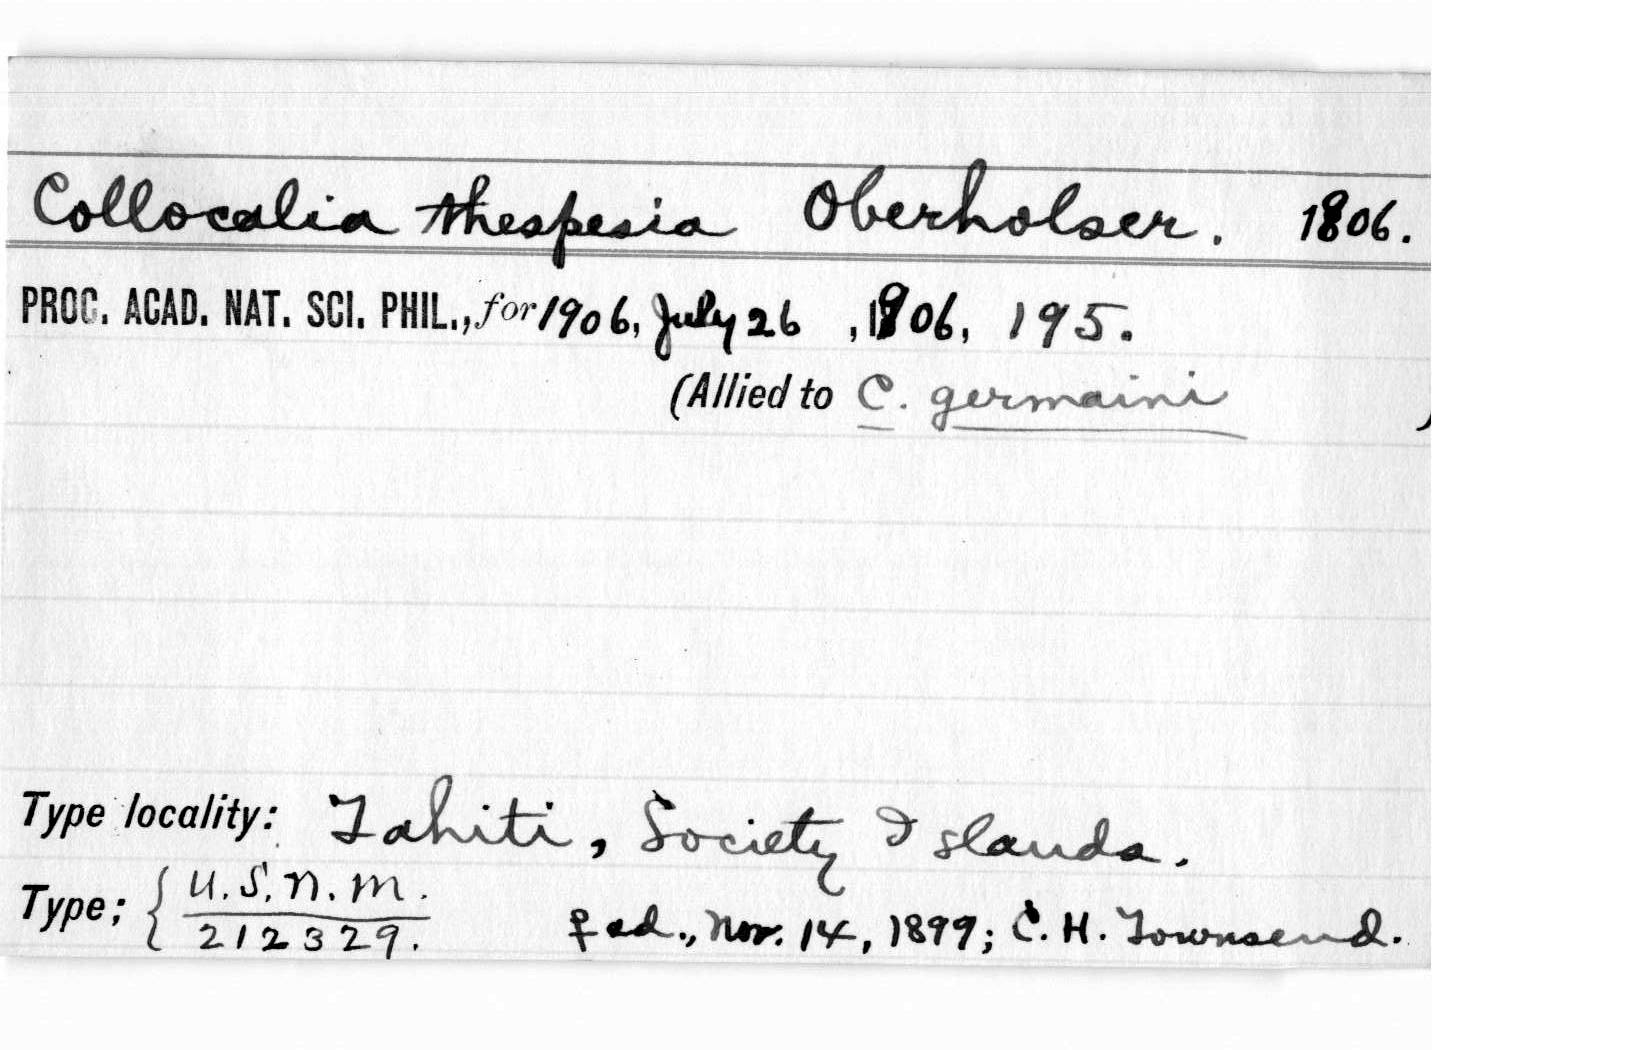 Collocalia thespesia Oberholser. 1906.
PROC. ACAD. NAT. SCI. PHIL., for 1906, July 26, 1906, 195.
(Allied to C. germaini )
Type locality: Tahiti, Society Islands.
Type; { U.S.N.M.
212329. ♀ ad., Nov. 14, 1899; C. H. Townsend.